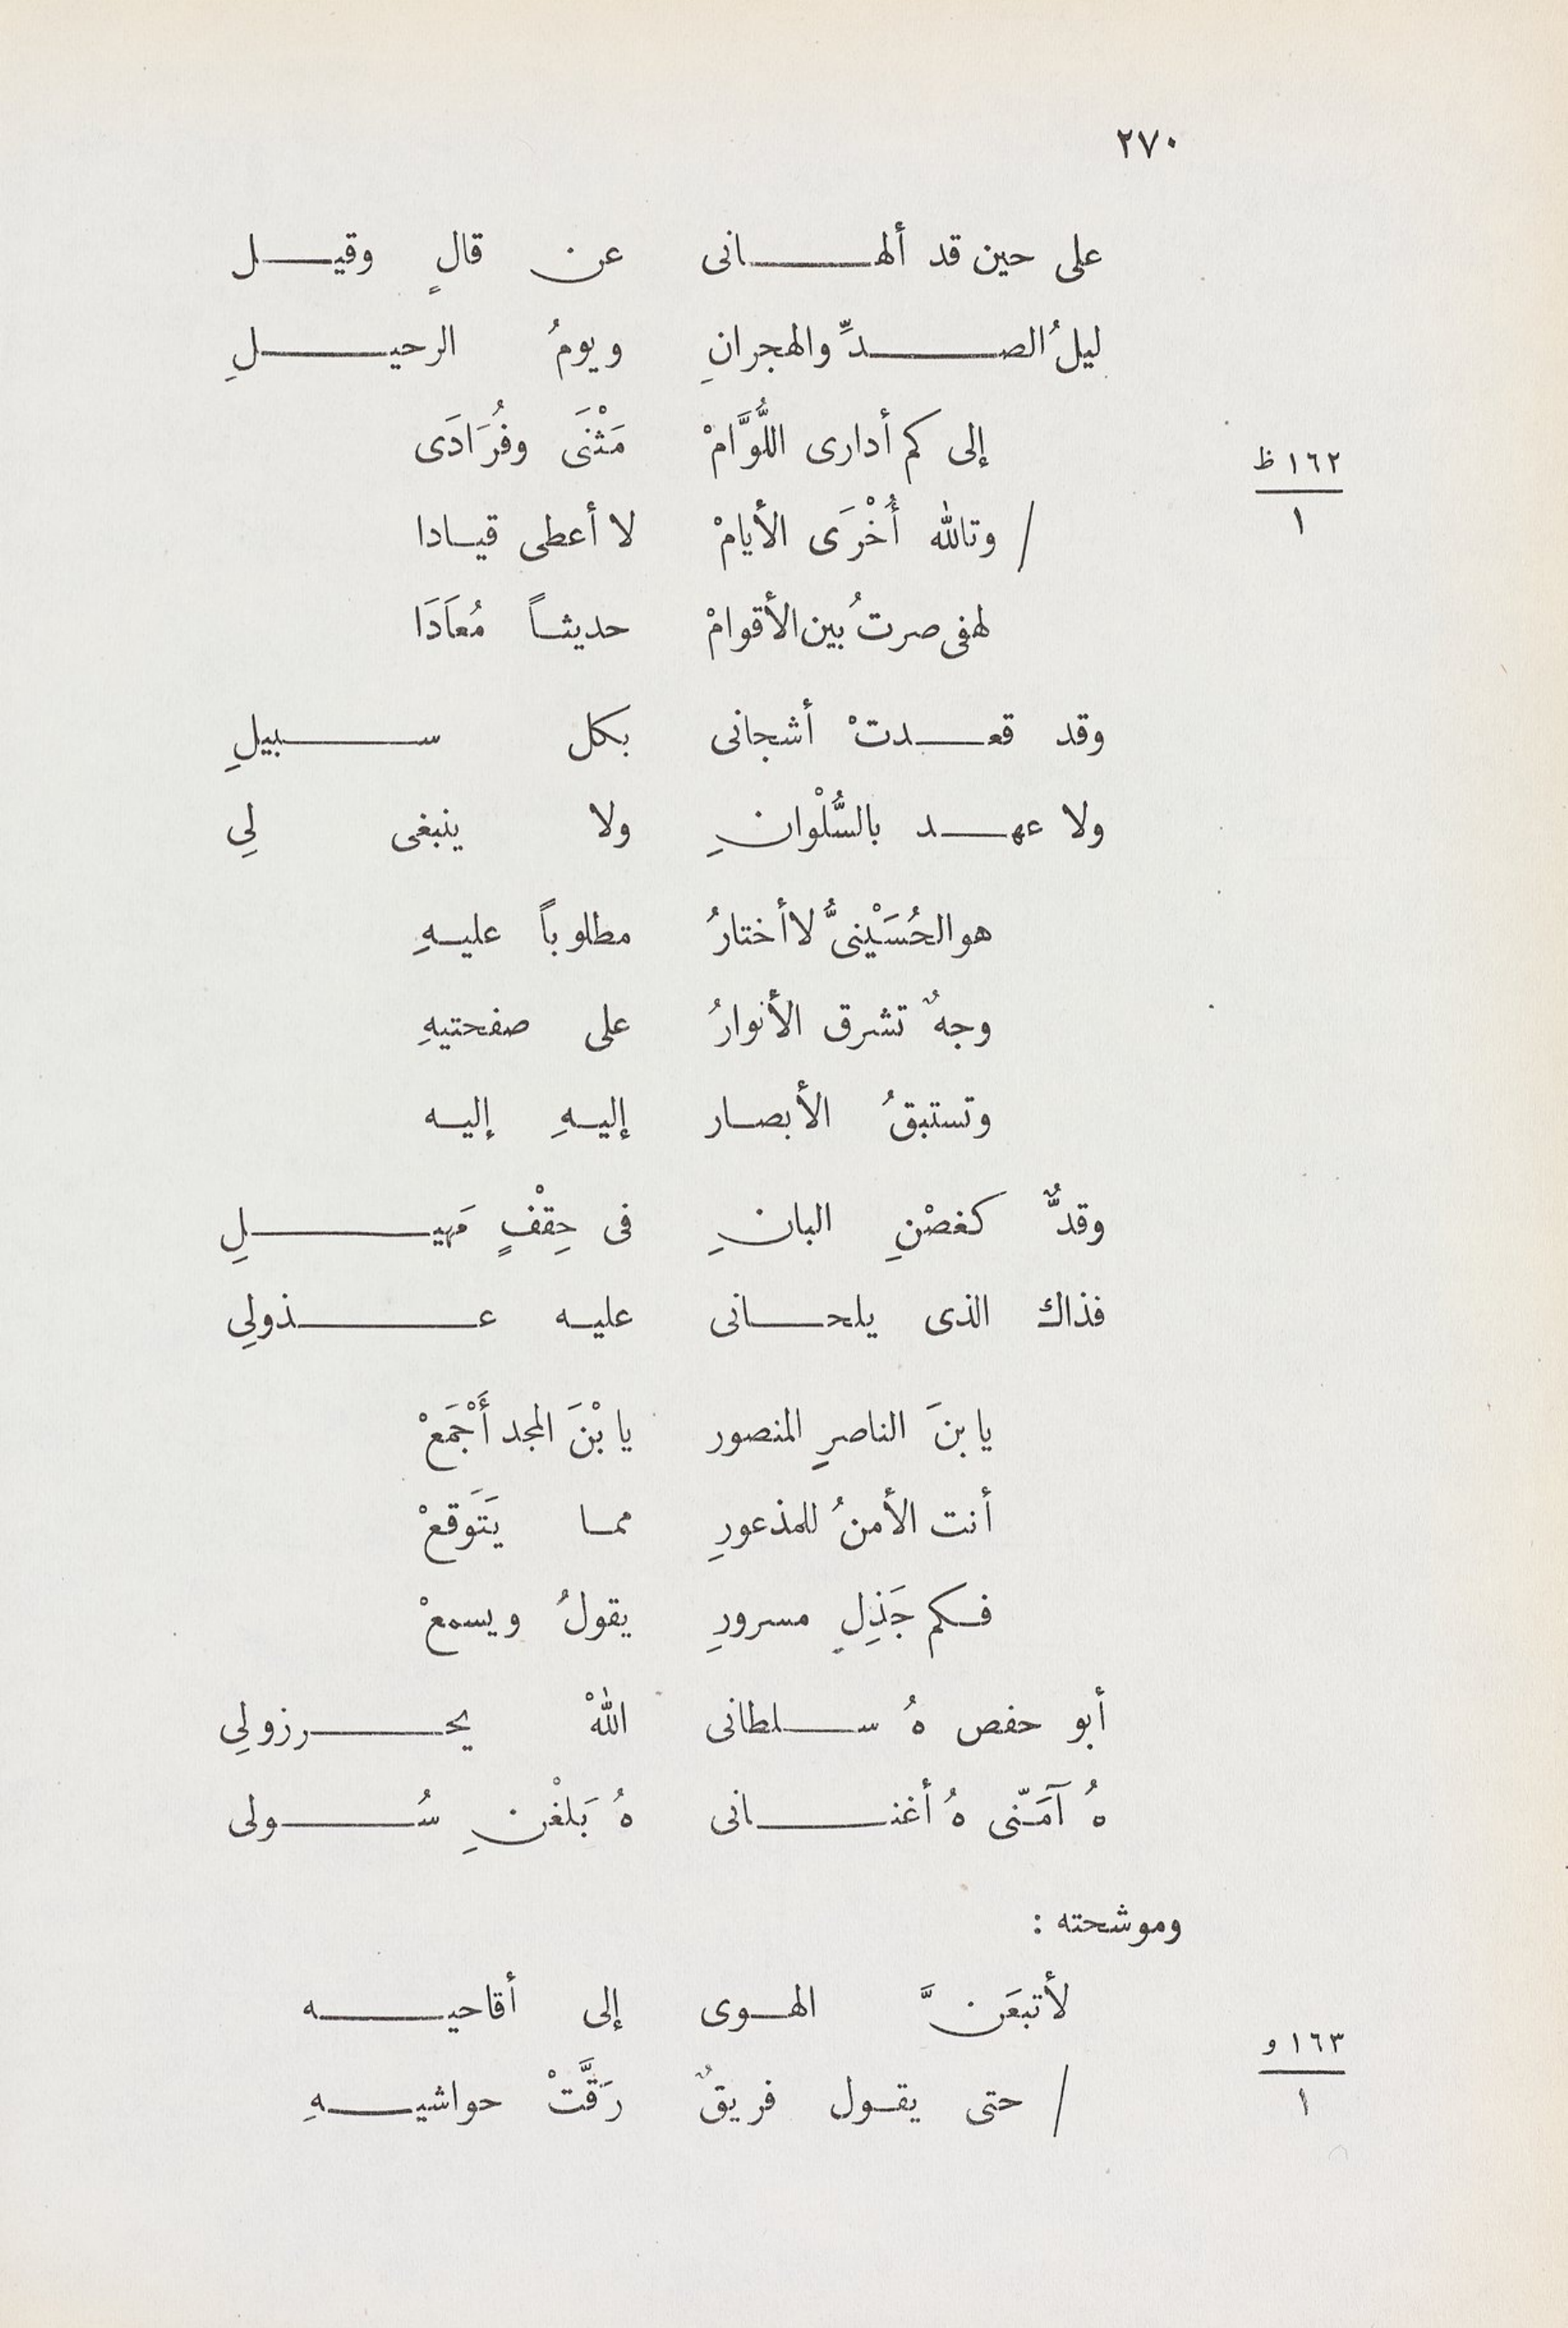 ٢٧٠
على حين قد ألهانى عن قالٍ وقيل
ليلُ الصدِّ والهجرانِ ويومُ الرحيلِ
إلى كم أدارى اللُّوَّامْ مَثْنَى وفُرَادَى
١٦٢ ظ
/ وتالله أُخْرَى الأيامْ لا أعطى قيادا
١
لهفى صرتُ بين الأقوامْ حديثاً مُعَادَا
وقد قعدتْ أشجانى بكل سبيلِ
ولا عهد بالسُّلْوانِ ولا ينبغى لِي
هو الحُسَيْنىُّ لا أختارُ مطلوباً عليهِ
وجهٌ تشرق الأنوارُ على صفحتيهِ
وتستبقُ الأبصار إليهِ إليه
وقدٌّ كغصْنِ البانِ فى حِقْفٍ مَهيلِ
فذاك الذى يلحانى عليه عذولِي
يا بنَ الناصرِ المنصور يا بْنَ المجد أَجْمَعْ
أنت الأمنُ للمذعورِ مما يَتَوقعْ
فكم جَذِلِ مسرورِ يقولُ ويسمعْ
أبو حفص هُ سلطانى اللهْ يحرزولِي
هُ آمَنّى هُ أغنانى هُ بَلغْنِ سُولى
وموشحته :
لأتبعَنَّ الهوى إلى أقاحيه
١٦٣ و
/ حتى يقول فريقٌ رَقَّتْ حواشيهِ
١